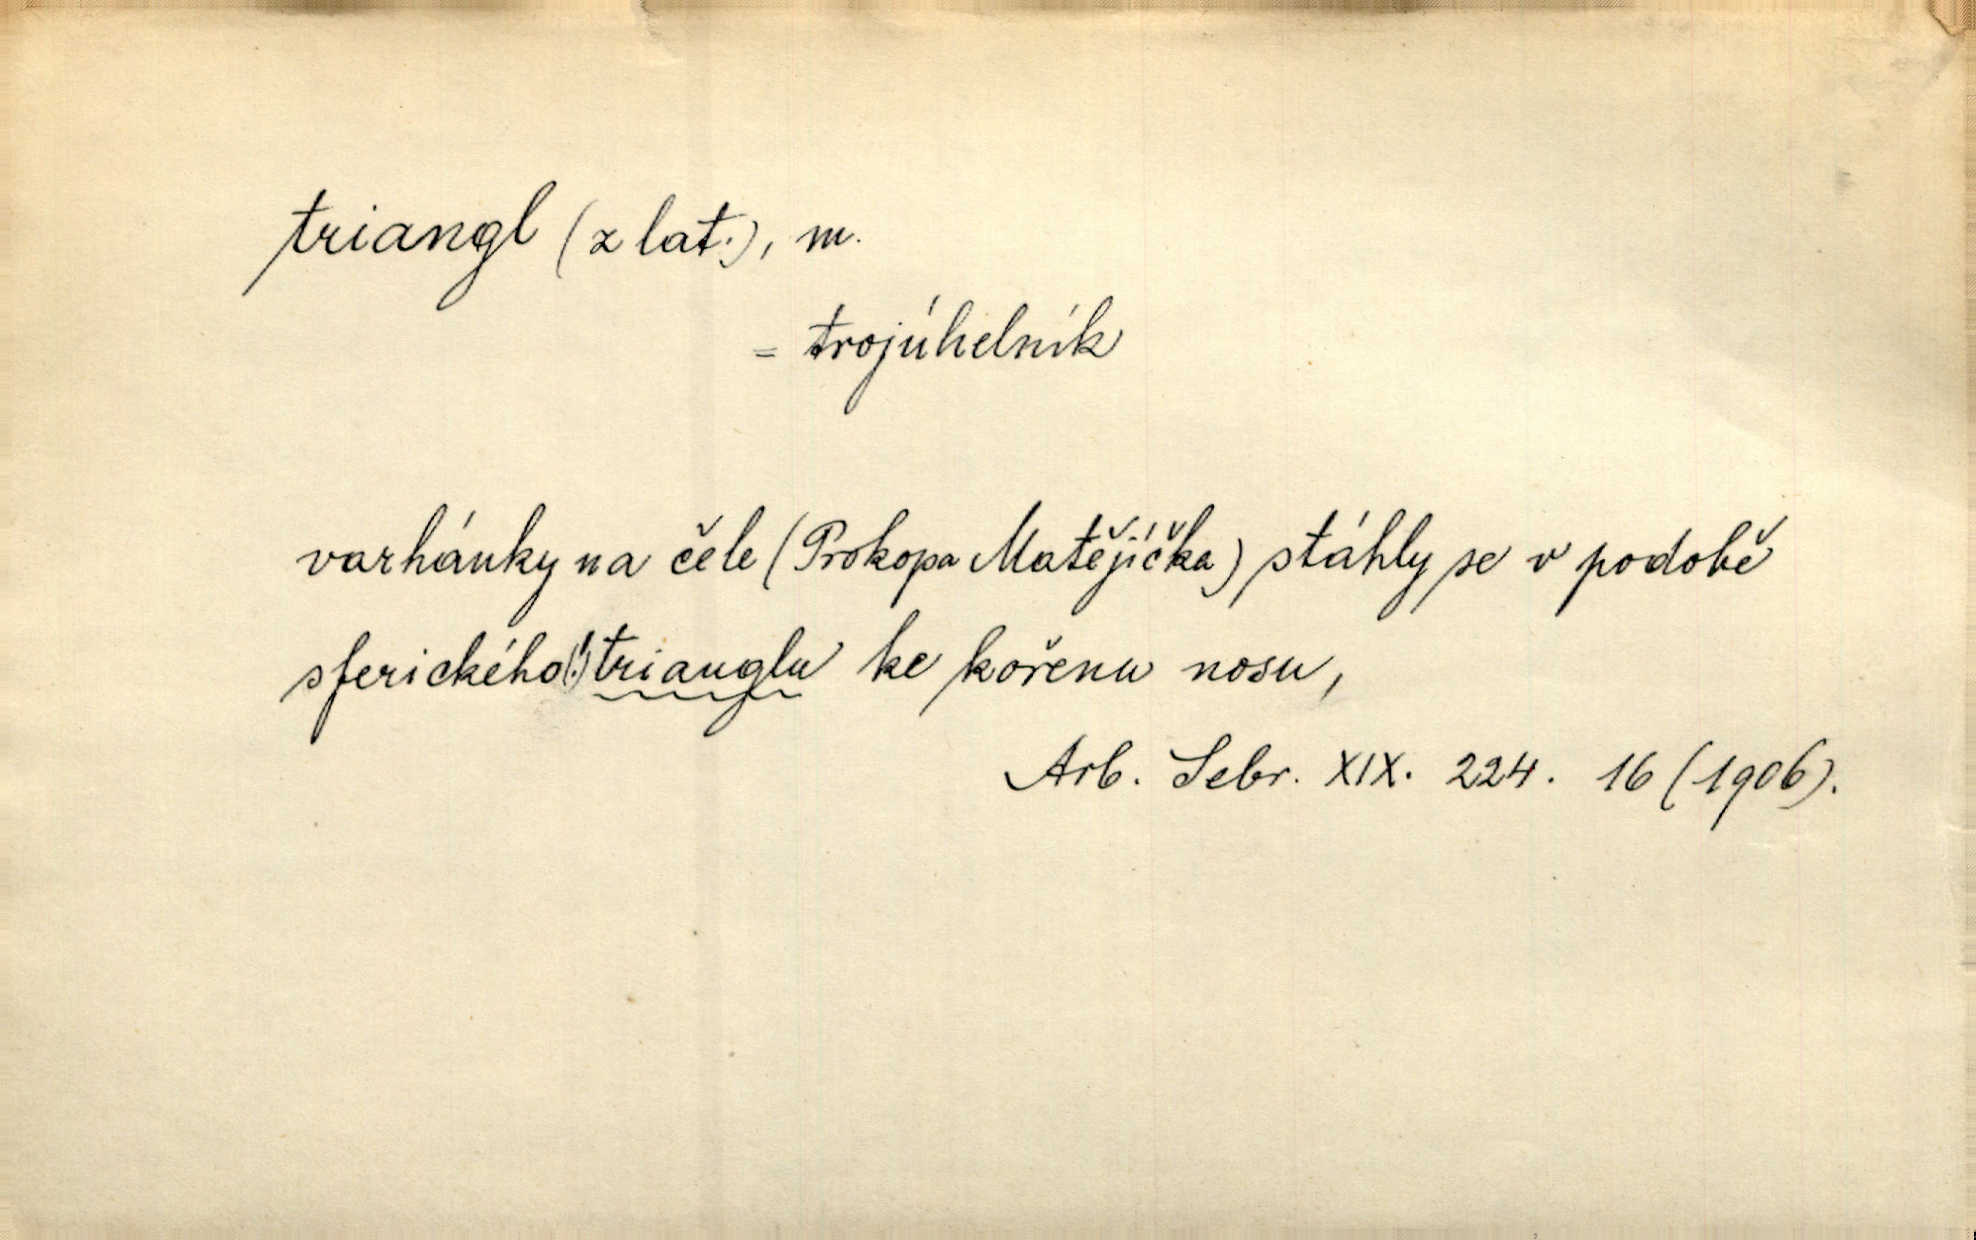 triangl (z lat.), m.
= trojúhelník
varhánky na čele (Prokopa Matějíčka) stáhly se v podobě
sferického(!) trianglu ke kořenu nosu,
Arb. Sebr. XIX. 224. 16 (1906).